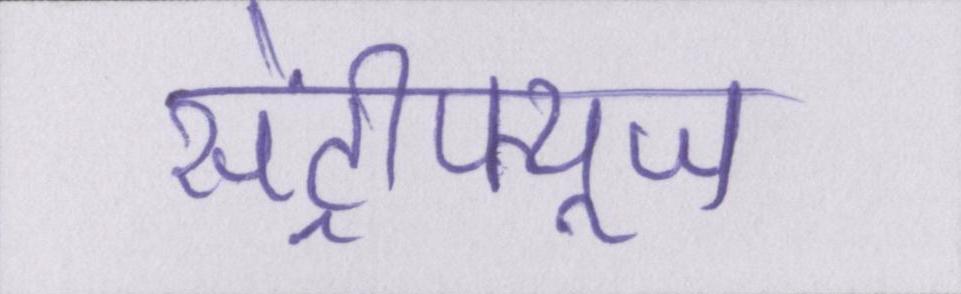 सेंट्रीफ्यूज